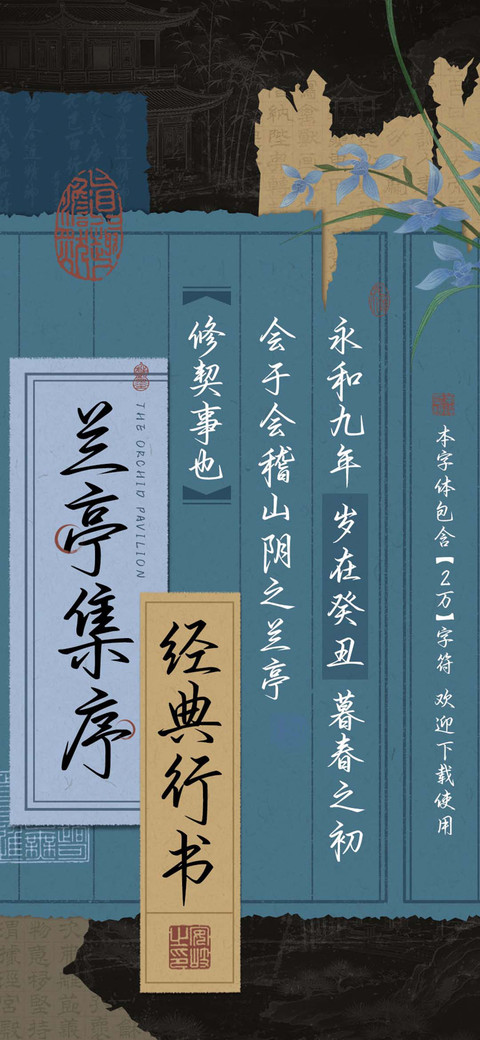 本字体包含【2万】字符 欢迎下载使用
永和九年 岁在癸丑 暮春之初
会于会稽山阴之兰亭
【修契事也】
兰亭集序
THE ORCHID PAVILION
经典行书